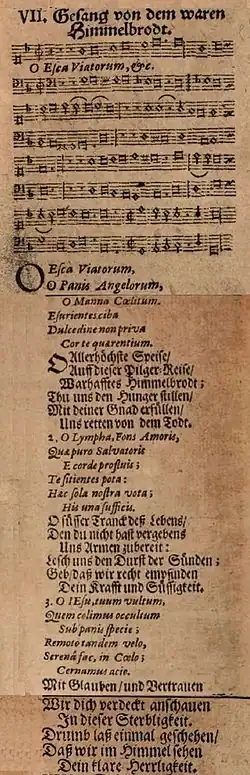 VII. Gesang von dem waren
Himmelbrodt.
O Esca Viatorum, &c.
O Esca Viatorum,
O Panis Angelorum,
O Manna Cœlitum.
Esurientes ciba
Dulcedine non priva
Cor te quærentium.
O Allerhöchste Speise/
Auff dieser Pilger-Reise/
Warhafftes Himmelbrodt;
Thu uns den Hunger stillen/
Mit deiner Gnad erfüllen/
Uns retten von dem Todt.
2. O Lympha, Fons Amoris,
Quæ puro Salvatoris
E corde profluis;
Te sitientes pota:
Hæc sola nostra vota;
His una sufficis.
O süsser Tranck deß Lebens/
Den du nicht hast vergebens
Uns Armen zubereit:
Lesch uns den Durst der Sünden;
Geb/ daß wir recht empfinden
Dein Krafft und Süssigkeit.
3. O IEsu, tuum vultum,
Quem colimus occultum
Sub panis specie;
Remoto tandem velo,
Serenâ fac, in Cœlo;
Cernamus acie.
Mit Glauben/ und Vertrauen
Wir dich verdeckt anschauen
In dieser Sterbligkeit.
Drumb laß einmal geschehen/
Daß wir im Himmel sehen
Dein klare Herrligkeit.